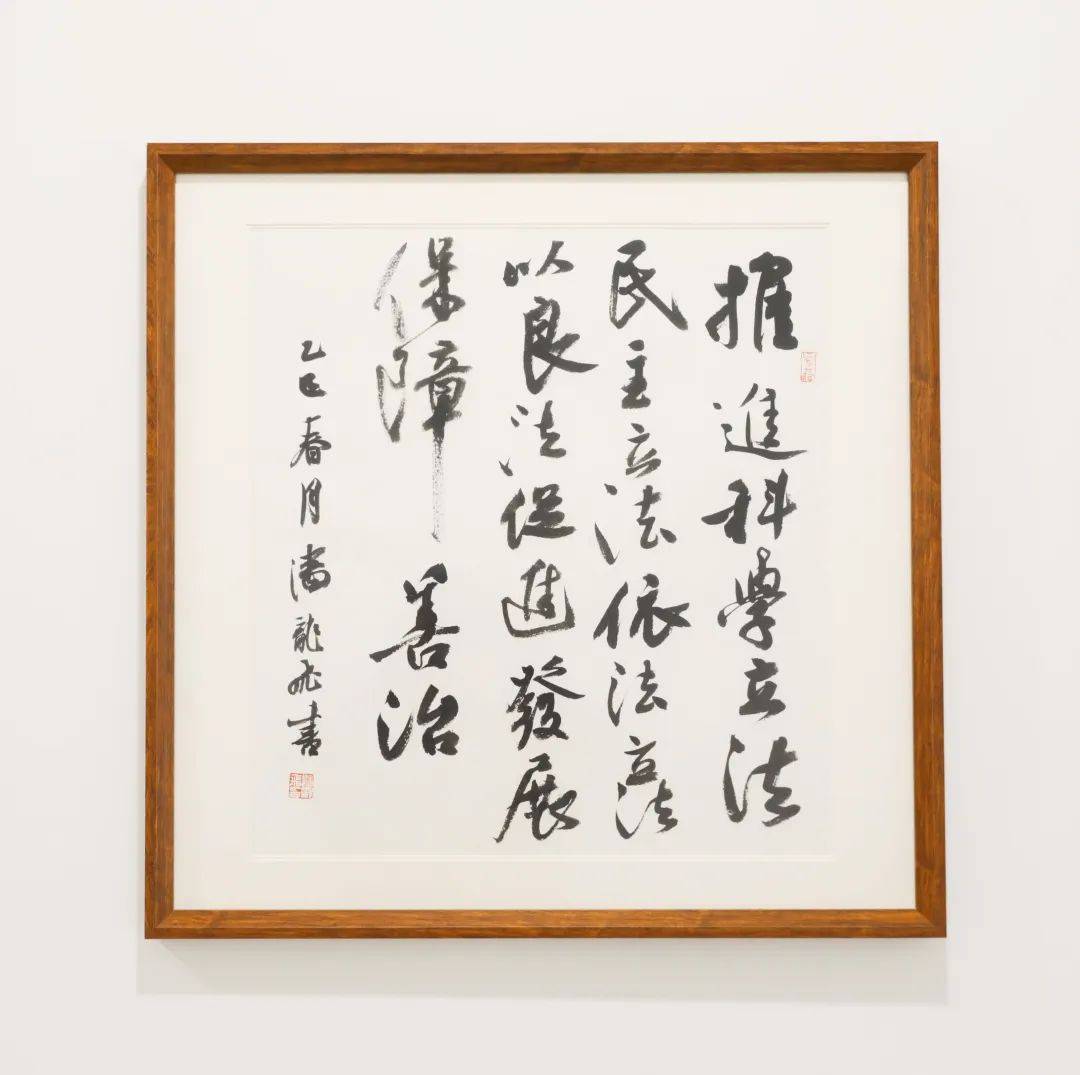 推進科學立法
民主立法依法立法
以良法促進發展
保障善治
乙巳春月潘龍飛書